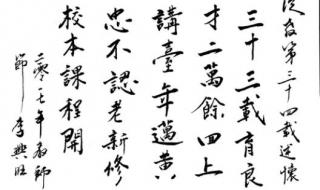 從教第三十四載述懷
三十三載育良
才二萬餘四上
講臺年邁黄
忠不認老新修
校本課程開
二零一七年教師
節 李興旺